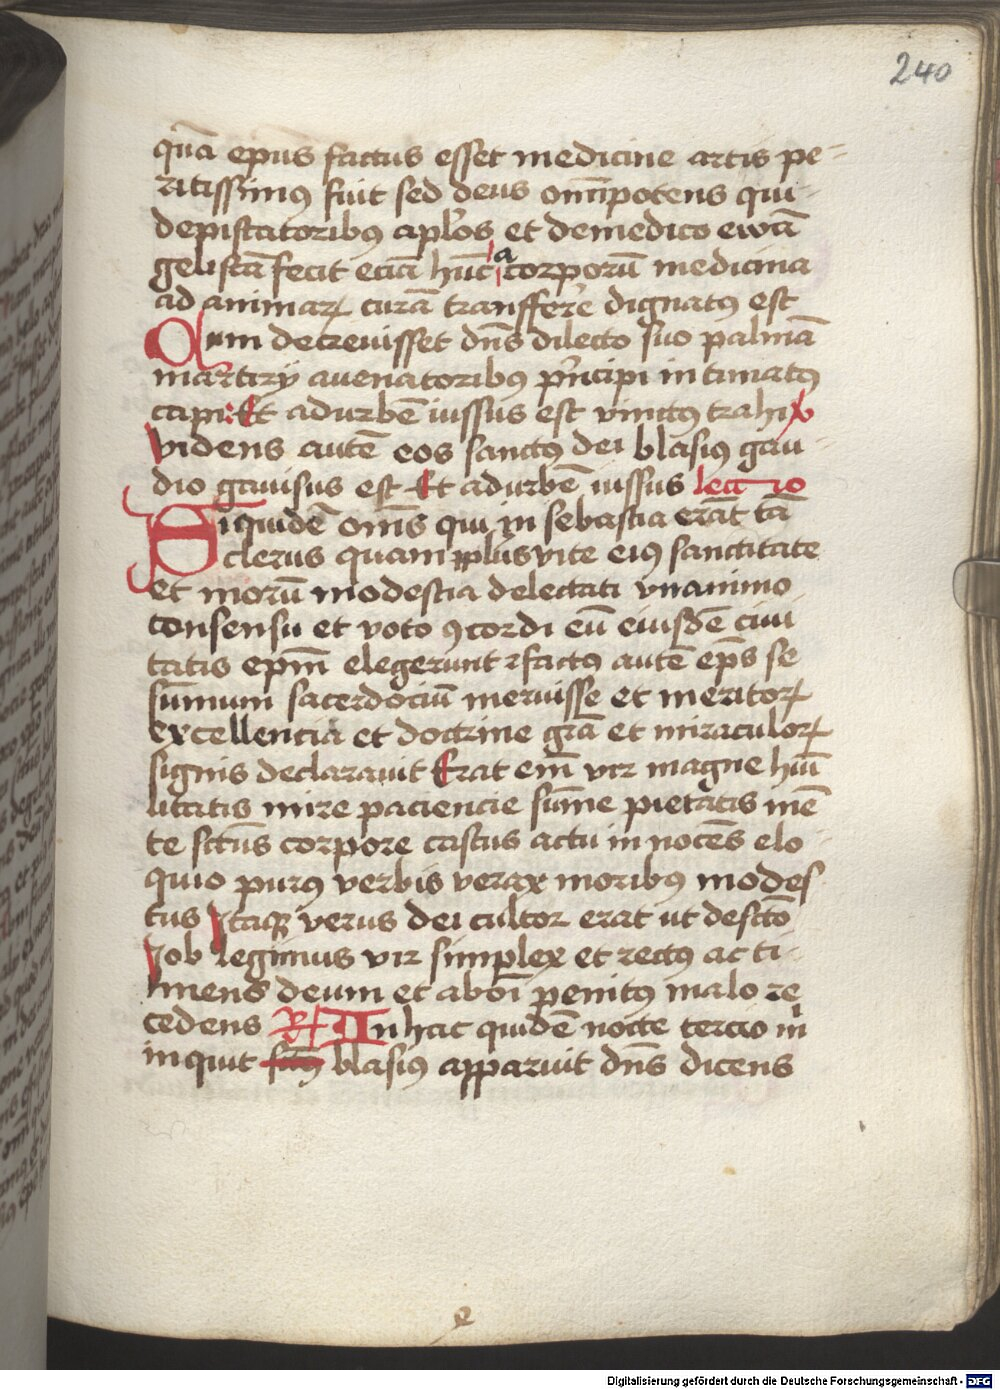 240
qua᷈ ep̄us factus esset medicine artis pe-
ritissimꝰ fuit sed deus om̄ipotens qui-
depistatoribꝰ apl̓os et demedico ewā
gelistā fecit eciā hūc a corporū medicina
ad animaꝝ curā transferre dignatꝰ est
Cum decreuisset dn̄s dilecto suo palmā
martirij auenatoribꝰ pͥncipi intimatꝰ
capi: Et adurbē iussus est vinctꝰ trahi v
videns autē eos sanctꝰ dei blasiꝰ gau
dio gauisus est Et adurbē iussus lectio
Siquidē om̄s qui in sebastia erāt tā
clerus quam pl̄us vite eiꝰ sanctitate
et morū modestia delectati vnanimo
consensu et voto ꝯcordi eū eiusdē ciui
tatis ep̄m elegerunt ⁊ factꝰ autē ep̄s se
sūmum sacerdociū meruisse et meritoꝝ
excellencia et doctrine grā et miraculoꝝ
signis declarauit Erat em̄ vir magne hūi
litatis mire paciencie sūme pietatis mē
te sctūs corpore castus actu in nocēs elo
quio purꝰ verbis verax moribꝰ modes
tus Itaqꝫ verus dei cultor erat ut desctō
Job legimus vir simplex et rectꝰ ac ti-
mens deum et abom̄i penitꝰ malo re
cedens R⁄ In hac quidē nocte tercio m̄
inquit blasiꝰ apparuit dn̄s dicens
e
Digitalisierung gefördert durch die Deutsche Forschungsgemeinschaft - DFG